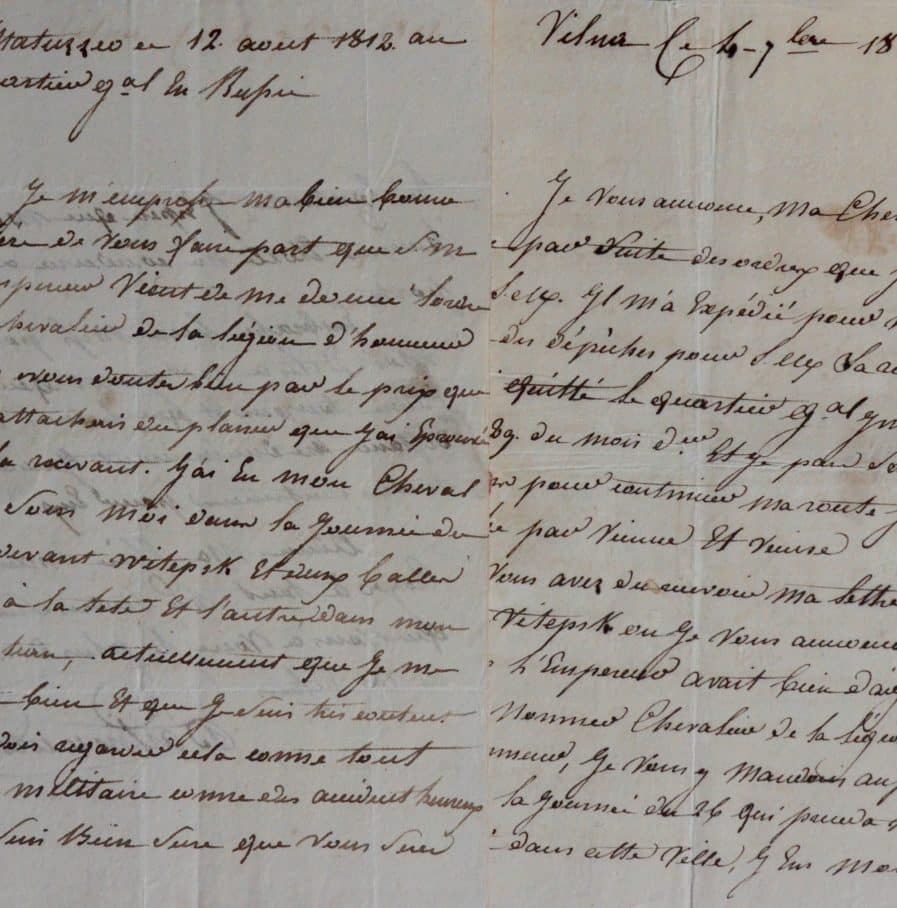 12. aout 1812. au
artier gal En Russie
Je m'empresse ma bien bonne
ere de Vous faire part que S. m
mpereur Vient de me donné lordre
hevalier de la légion d'honneur
vous douter bien par le prix que
attachais du plaisir que J'ai Eprouvé
recevant. J'ai Eu mon Cheval
Sous Moi dans la Journée du
devant Witepsk Et deux balles
à la tete Et l'autre dans mon
actuellement que Je me
bien Et que Je Suis tres content
dois regarder cela comme tout
militaire comme des accident heureux
Suis Bien Sure que Vous Serez
Vilna Ce 4 - 7bre 18
Je Vous annonce, Ma Cher
par Suite des ordres que
S. Ex. Il m'a Expédié pour
des dépêches pour S. Ex
quitté le quartier gal
29. du mois der. Et Je
pour continuer ma route
par Vienne Et Venise
Vous avez du recevoir Ma lettre
Vitepsk ou Je Vous annonc
l'Empereur avait bien d'aig
Nommer Chevalier de la légio
nneur, Je Vous y Mandais au
la Journée du 26 qui
dans cette Ville, J Eus Mo